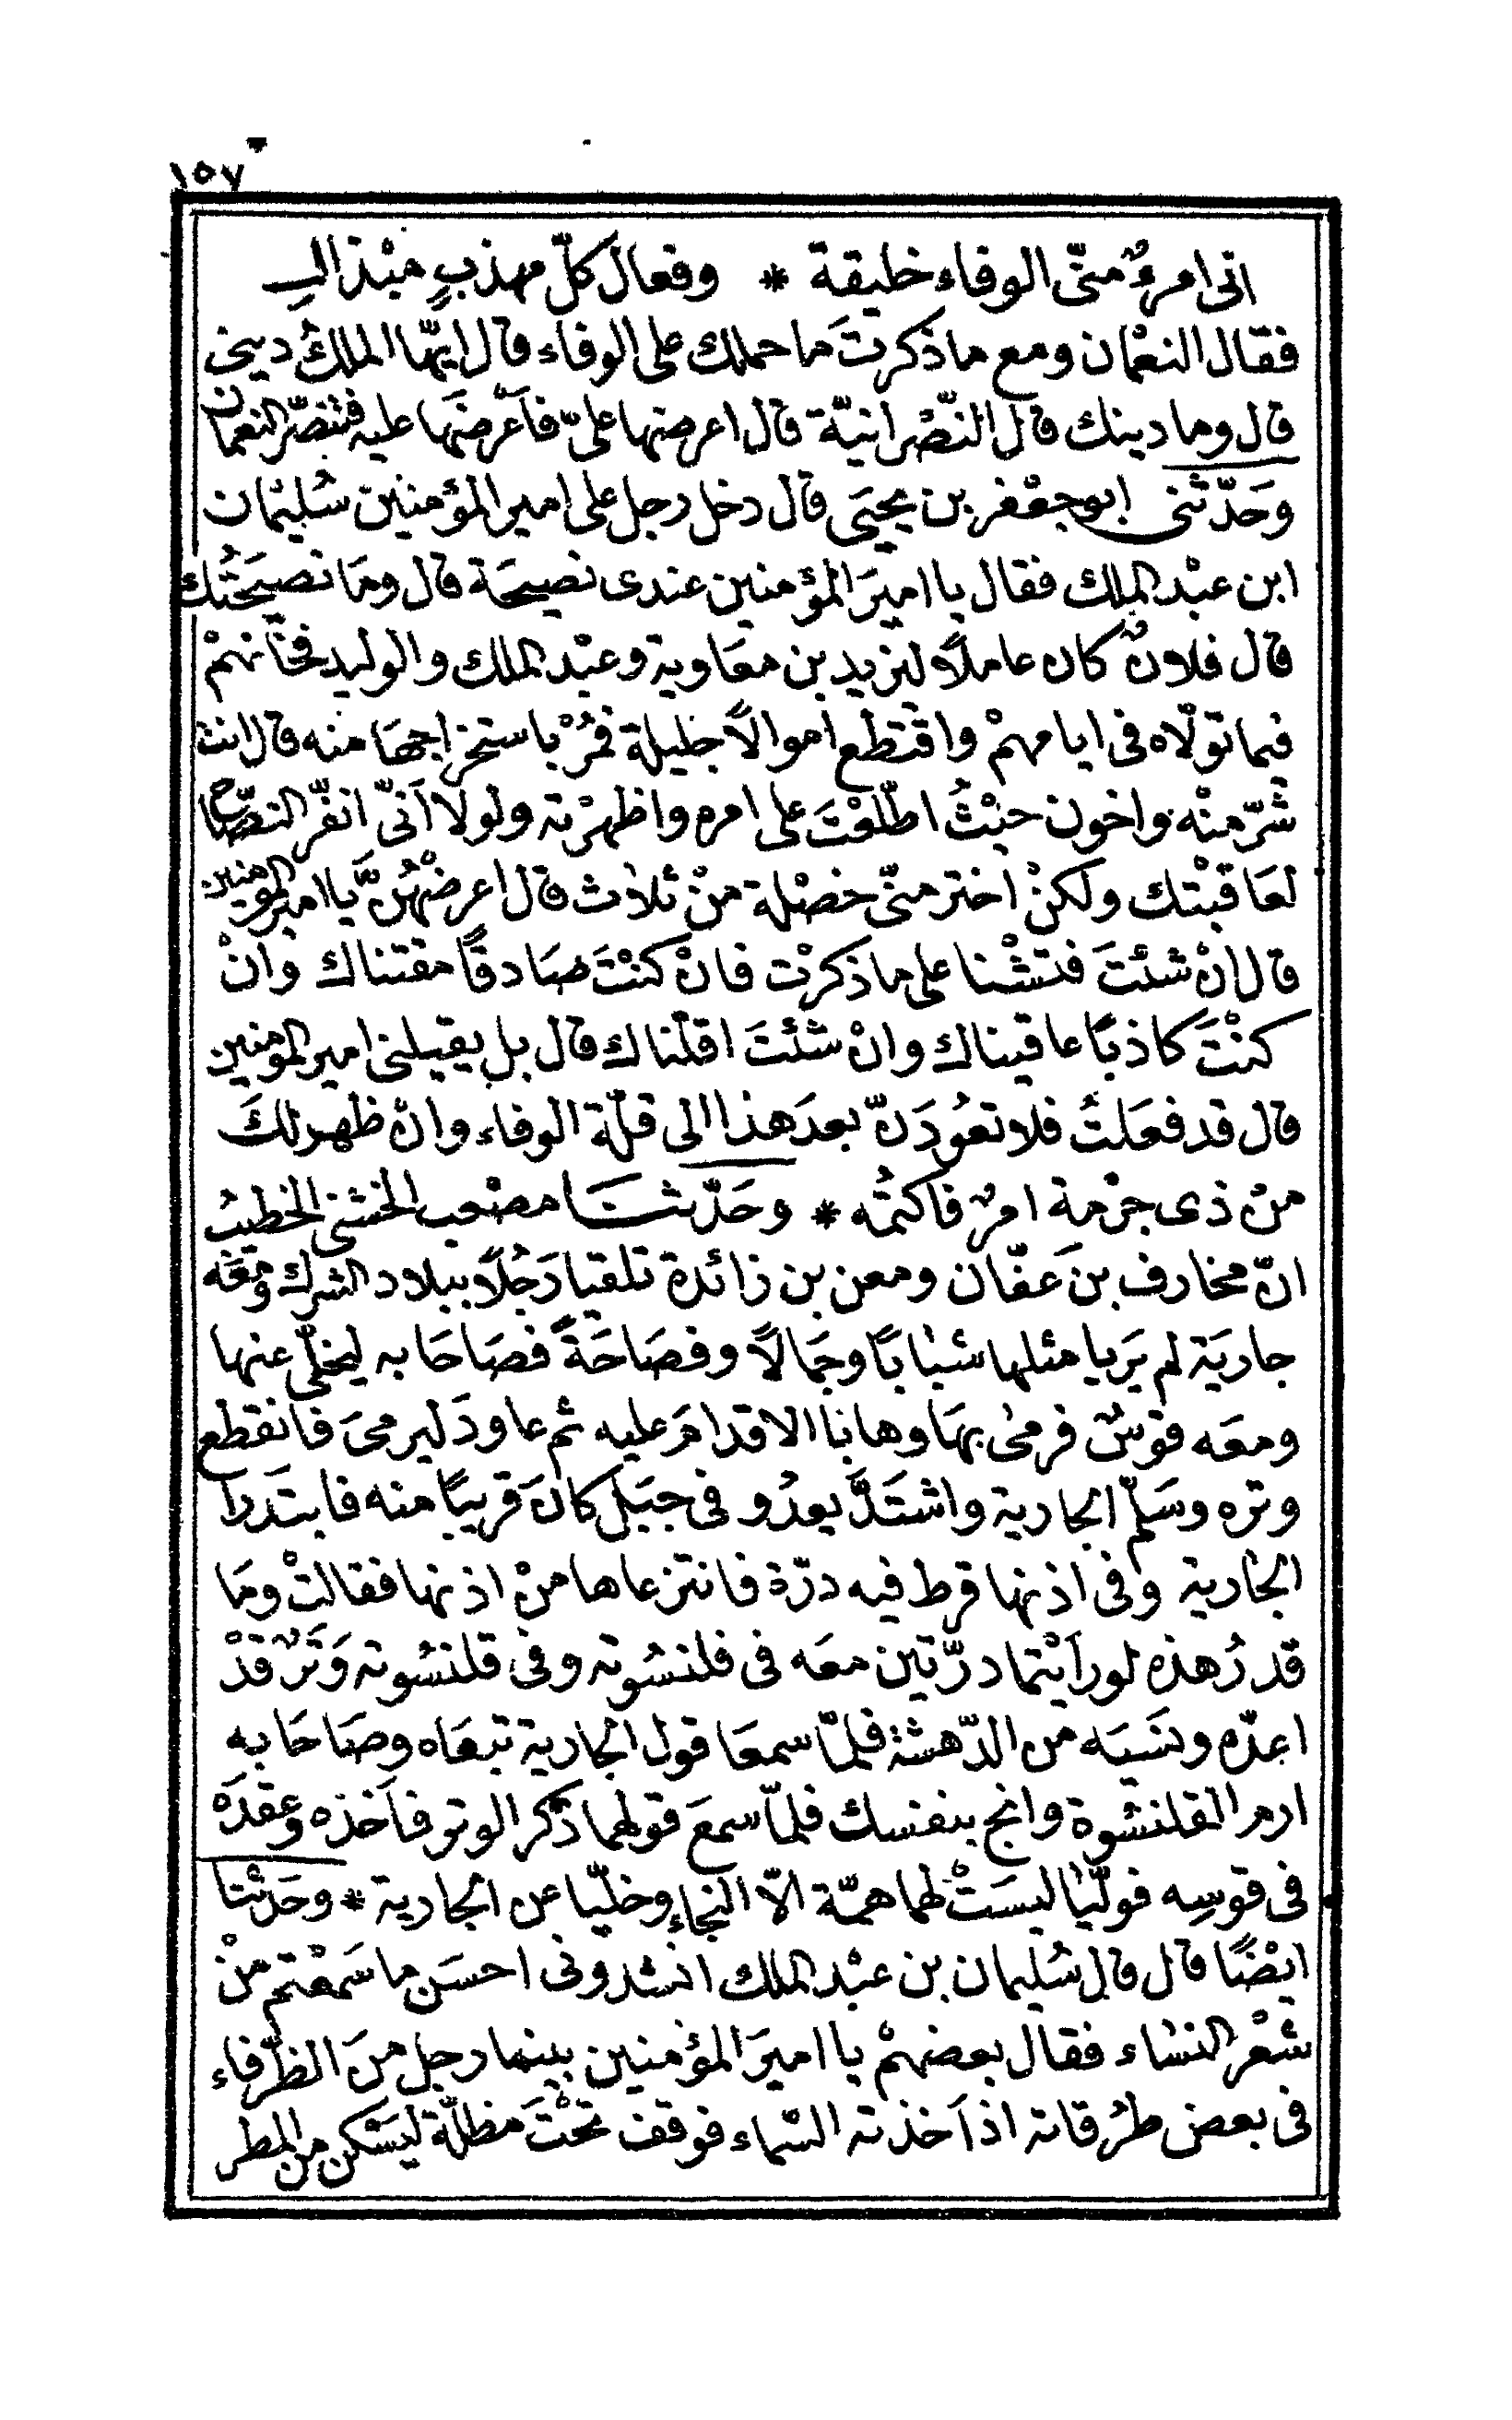 ١٥٧
انى امرءٌ منّى الوفاء خليقة * وفعال كلّ مهذبٍ مبذال
فقال النعْمان ومع ما ذكرتَ ما حملك على الوفاء قال ايّها الملكُ دينى
قال وما دينك قال النّصْرانيّة قال اعرضها علىّ فاَعْرضَها عليه فتنصّر النعمان
وَحَدّثنى ابو جعْفر بن يحيَى قال دخل رجل على امير المؤمنين سُليْمان
ابن عبْد الملك فقال يا اميرَ المؤمنين عندى نصيحَة قال ومَا نصيحَتُك
قال فلانٌ كان عاملاً ليزيد بن معَاوية وعبْد الملك والوليد فخَانهمْ
فيما تولّاه فى ايامهمْ واقْتطع اموالاً جليلة فمُرْ باستخراجهَا منه قال انت
شرّ منْه واخون حيْثُ اطّلعْتَ على امره واظهرْته ولولا اَنّى انفّر النصّاح
لعَاقبْتك ولكنْ اختر منّى خصْلة منْ ثلاث قال اعرضْهُنّ يا امير المؤمنين
قال انْ شئتَ فتشْنا على ما ذكرْت فانْ كنْتَ صَادقًا مقتناك وانْ
كنْتَ كاذبًا عاقبناك وانْ شئتَ اقلْناك قال بل يقيلنى امير المؤمنين
قال قد فعَلتُ فلا تعُودَنّ بعدَ هذا الى قلّة الوفاء وانْ ظهر لكَ
منْ ذى حرْمة امرٌ فاكتُمه * وحَدّثنَا مصْعب الخشنى الخطيبُ
انّ مخارف بنَ عَفّان ومعن بن زائدة تلقيا رَجُلاً ببلاد الشرك ومعَه
جاريَة لم يَريا مثلها شبَابًا وجَمالاً وفصَاحَةً فصَاحَا به ليخلّى عنها
ومعَه قوْسٌ فرمىٰ بهَا وهابا الاقدامَ عليه ثم عاودَ ليرمىَ فانقطع
وتره وسَلّم الجارية واشتَدَّ يعدُو فى جبَلٍ كانَ قريبًا منه فابتدَرا
الجارية وفى اذنها قرط فيه درّة فانتزعاها منْ اذنها فقالتْ ومَا
قدرُ هذه لو رَاَيْتما درّتين معَه فى قلنسُوته وفى قلنسُوته وَتَرٌ قدْ
اعدّه ونسَيَه من الدّهشة فلمّا سمعَا قول الجارية تبعَاه وصَاحَا به
ارم القلنسُوة وانج بنفسك فلمّا سمعَ قولهما ذكر الوتر فاَخذه وعقدَه
فى قوسِه فولّيَا ليسَتْ لهما همّة الّا النجاءِ وخليّا عن الجارية * وحَدّثنا
ايضًا قال قال سُليمان بن عبْد الملك انشدونى احسَن ما سَمعْتم منْ
شعْر النسَاء فقال بعضهمْ يا اميرَ المؤمنين بينما رجل منَ الظّرفاء
فى بعض طرُقاته اذ اَخذته السّماء فوقف تحْتَ مظلّة ليَسْكن من المطر